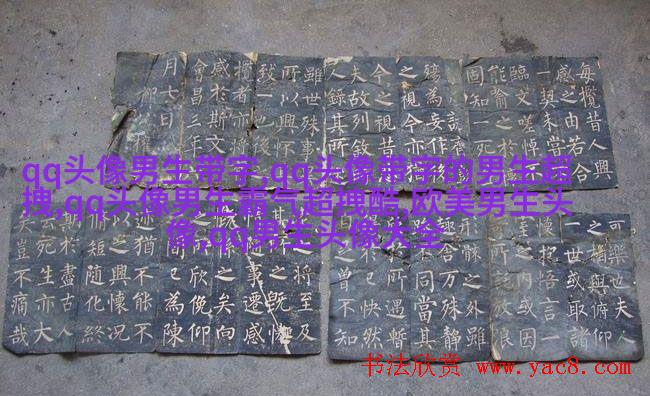 qq头像男生带字,qq头像带字的男生超
拽,qq头像男生霸气超拽酷,欧美男生头
像,qq男生头像大全
每攬昔人興
感之由若合
一契未嘗
臨文嗟悼
能喻之
固知一死
殤為妄作後
之視今
今之視昔
夫故列敘
人錄其所
雖世殊事
所以興懷
致一也後
攬者
感於斯文
會昌三年
月七日
可樂也夫人
之相與俯仰
一世或取諸
懷抱悟言一
內或因
所託放浪
形骸之外雖
趣舍万殊靜
不同當其
所遇暫
己快然
曾不知
將至及
之既
事遷感
之矣向
欣俛仰
間已為陳
迹猶不能不
以之興懷況
脩短隨化終
期於盡古人
云死生亦大
矣豈不痛哉
书法欣赏 www.yac8.com